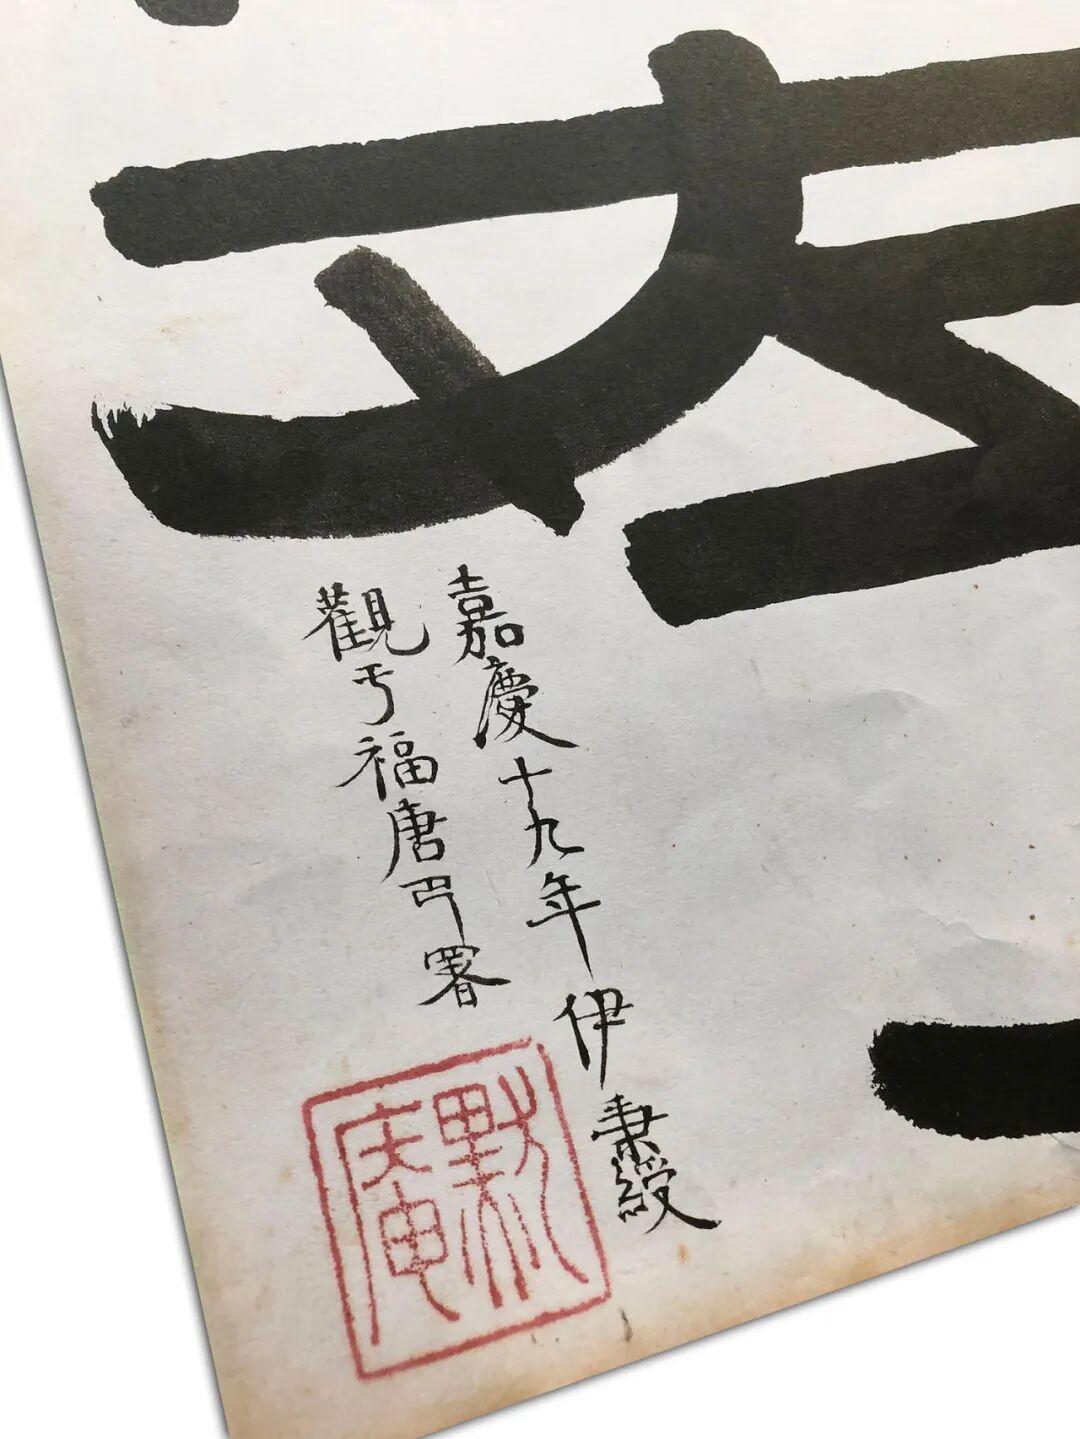 嘉慶十九年伊秉綬
觀于福唐署
默庵